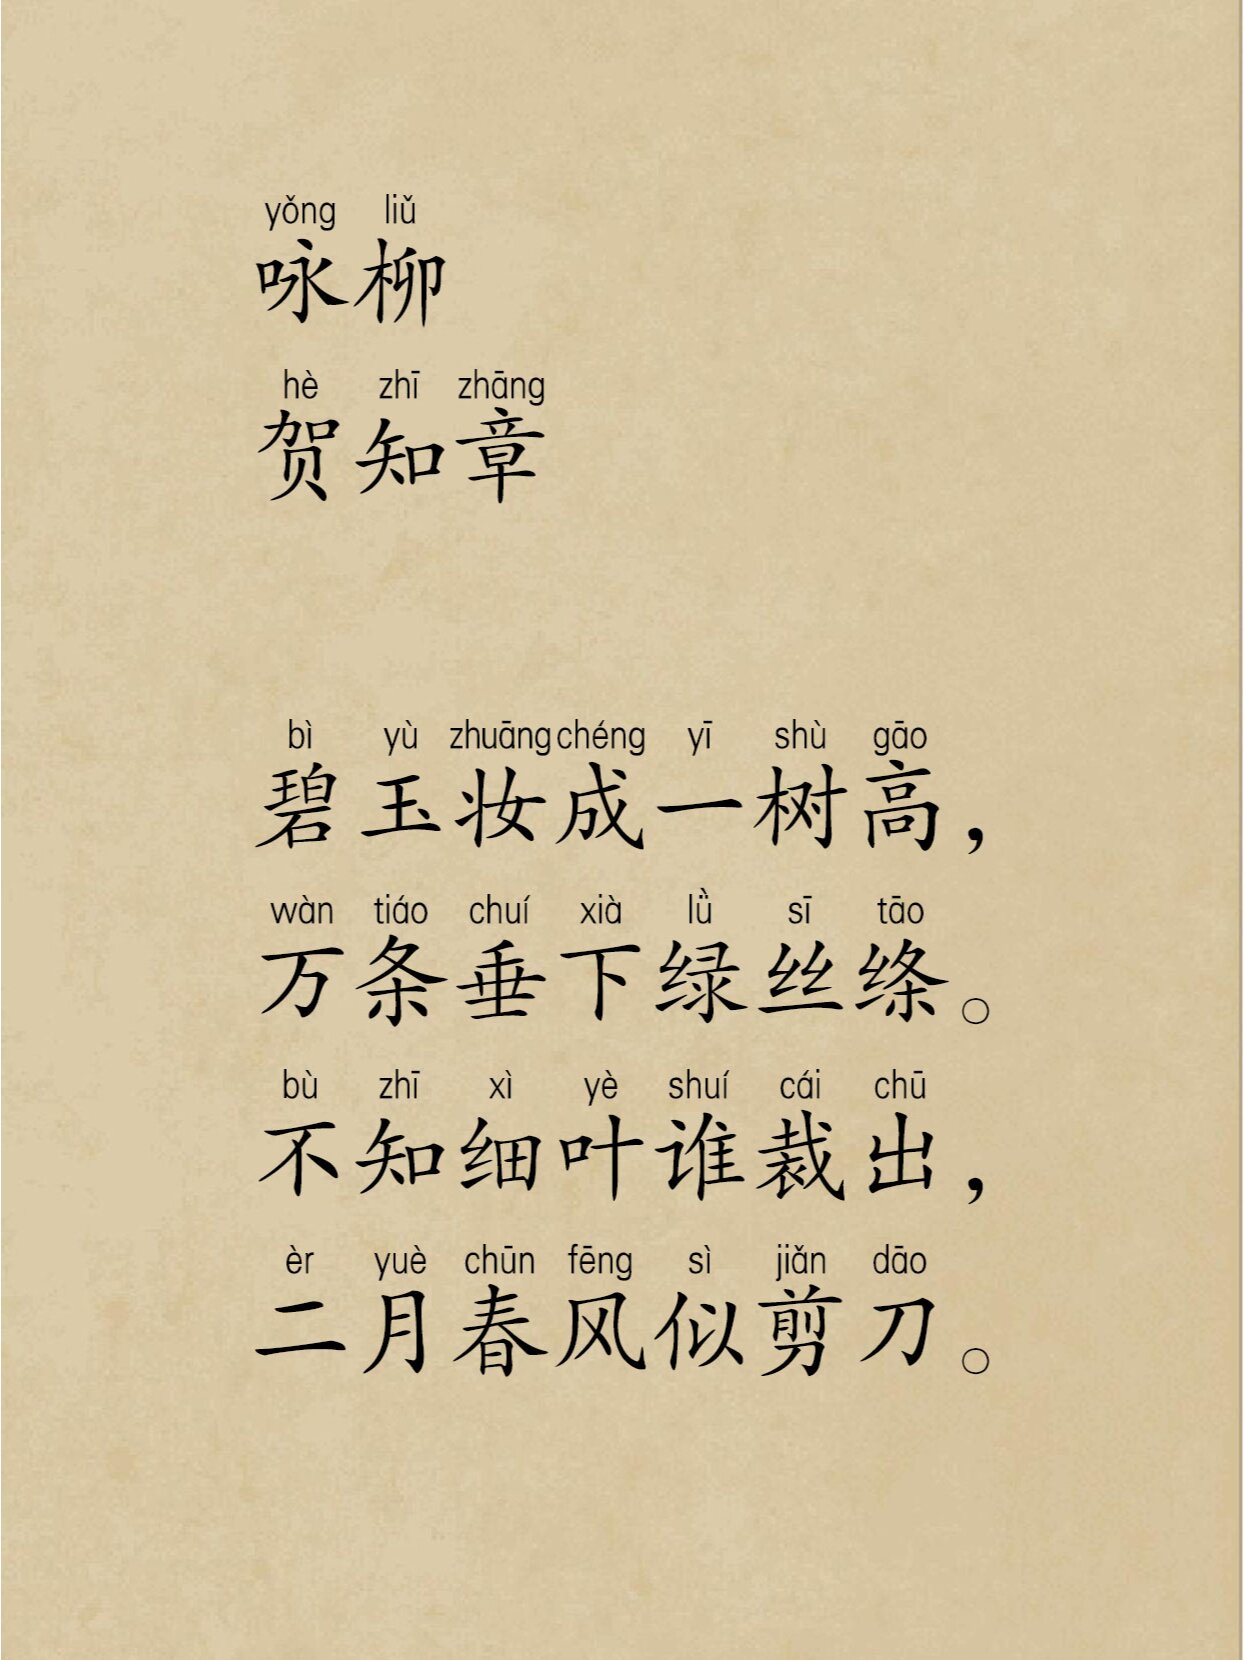 yǒng liǔ
咏柳
hè zhī zhāng
贺知章
bì yù zhuāng chéng yī shù gāo
碧玉妆成一树高，
wàn tiáo chuí xià lǜ sī tāo
万条垂下绿丝绦。
bù zhī xì yè shuí cái chū
不知细叶谁裁出，
èr yuè chūn fēng sì jiǎn dāo
二月春风似剪刀。